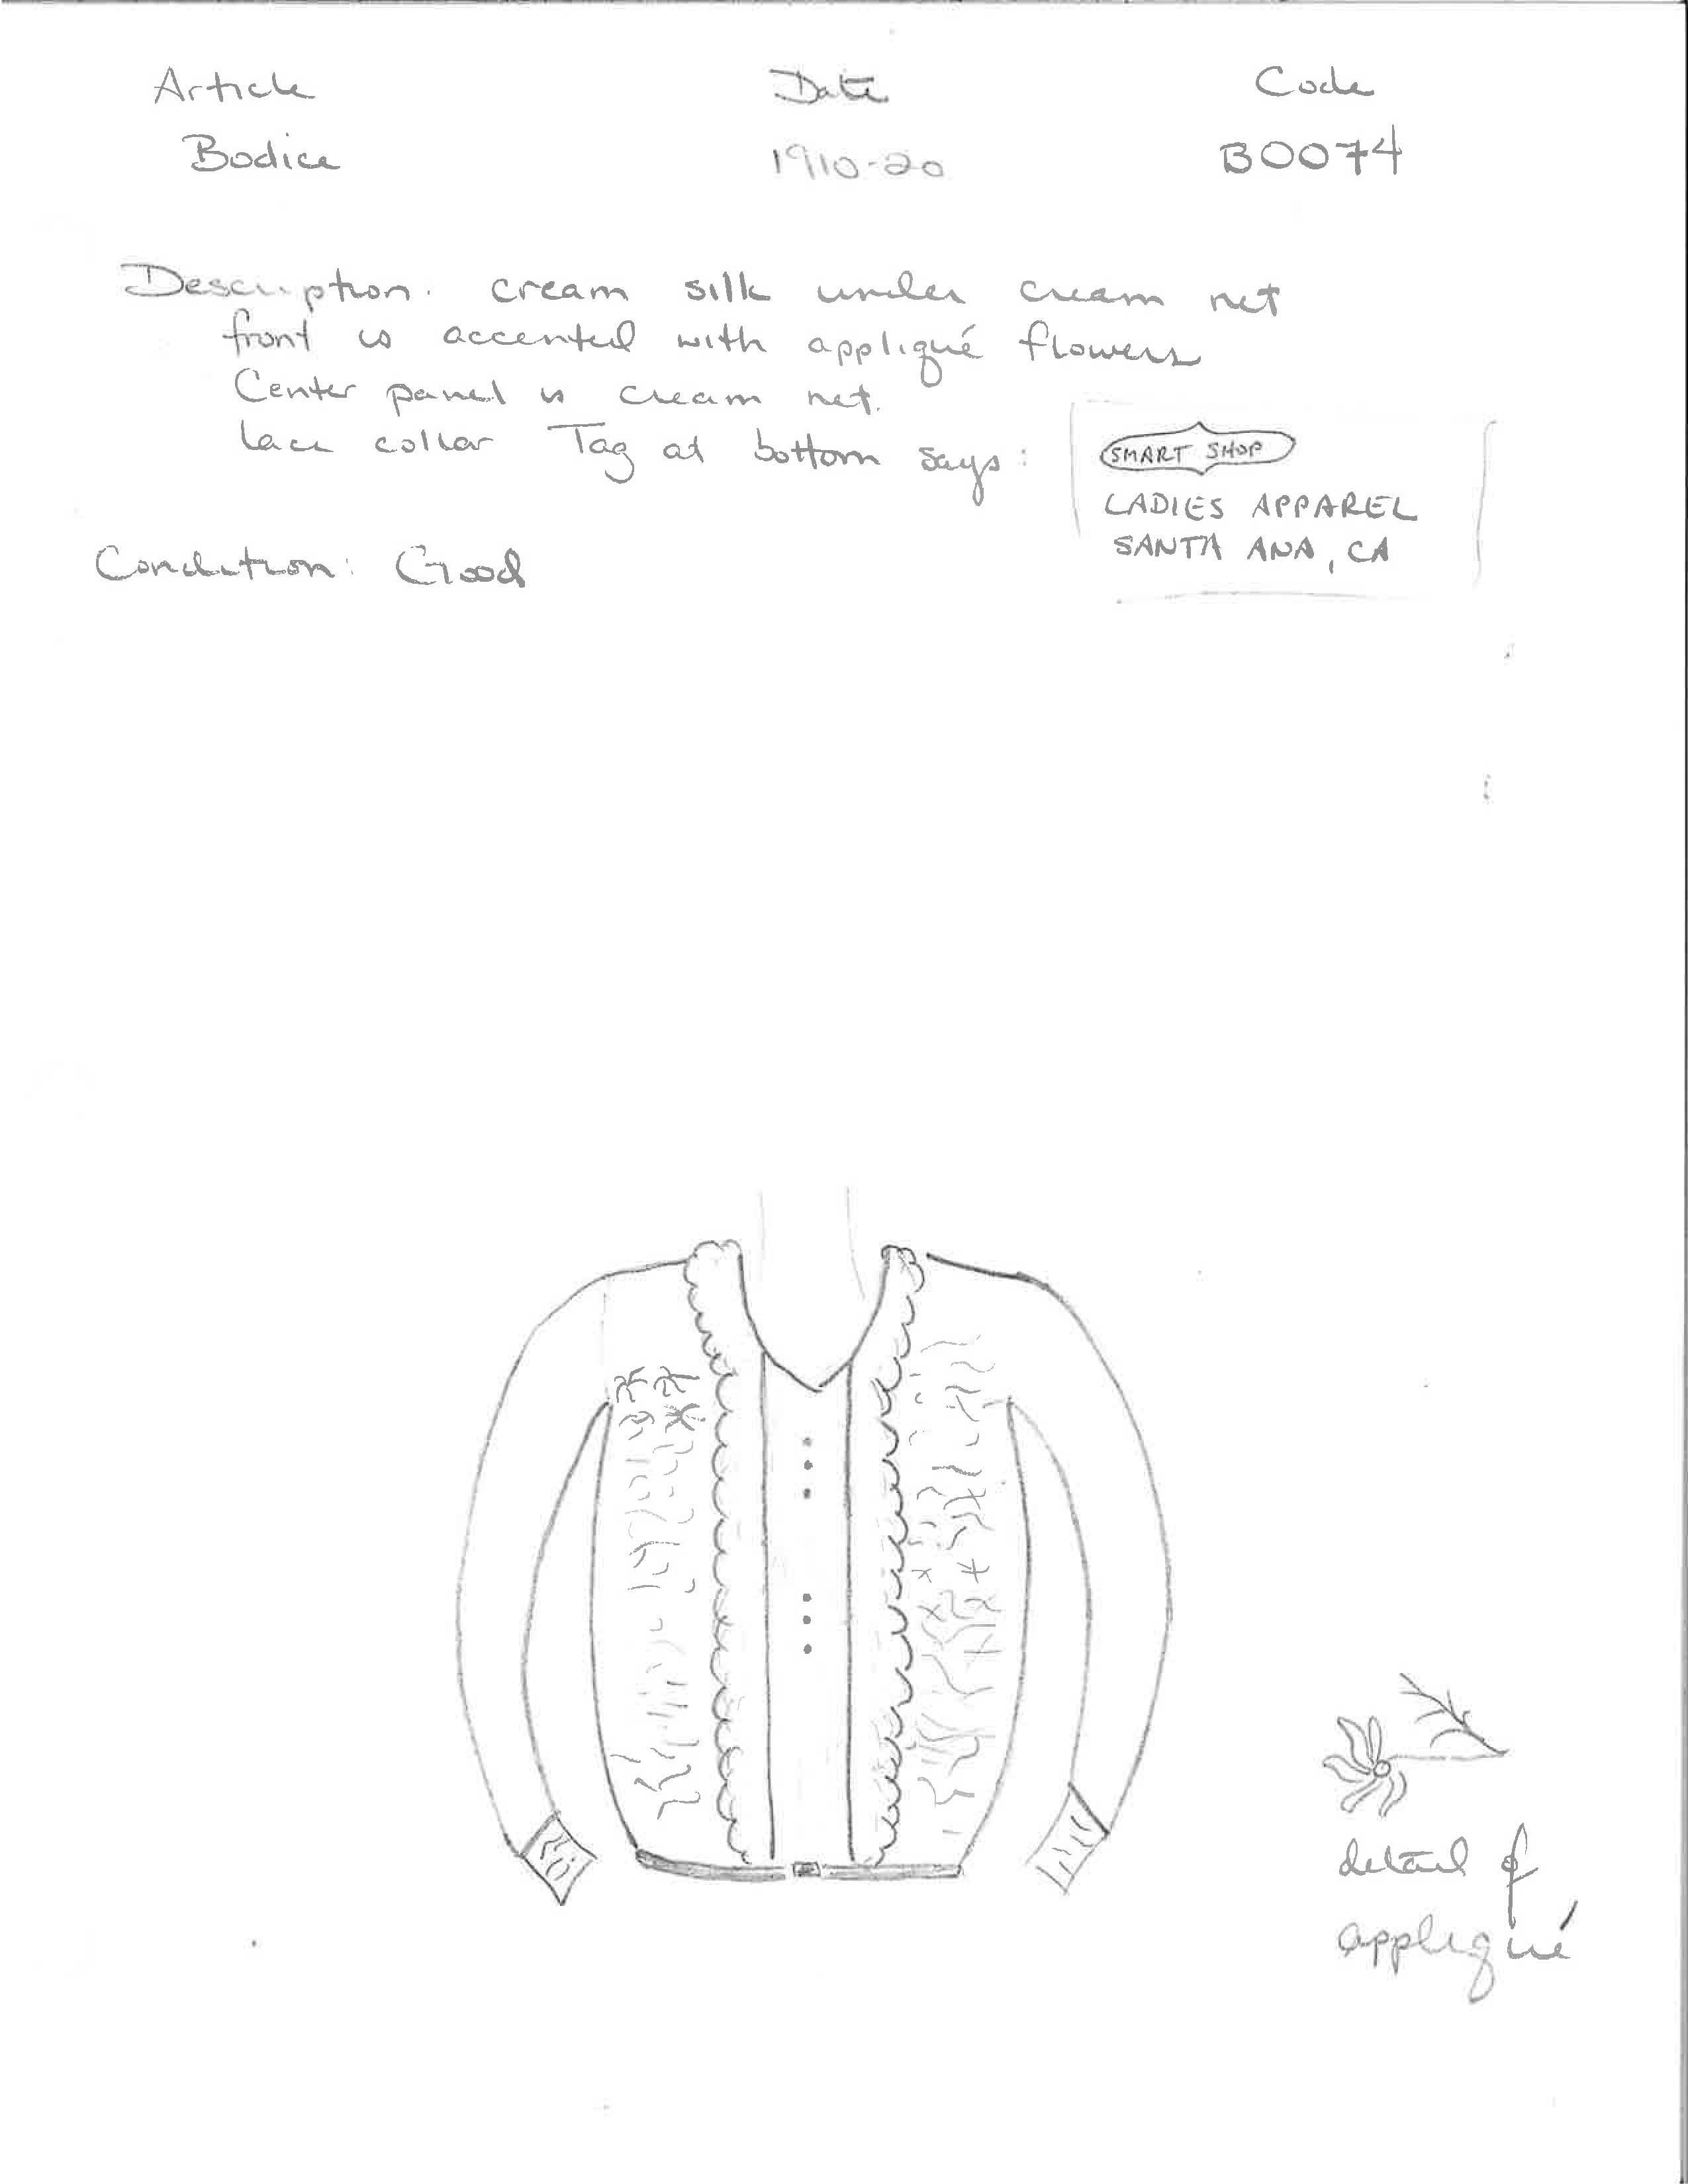 Article Date Code
Bodice 1910-20 B0074
Description: cream silk under cream net
front is accented with appliqué flowers
Center panel is cream net.
lace collar Tag at bottom says:
SMART SHOP
LADIES APPAREL
SANTA ANA, CA
Condition: Good
detail of
appliqué